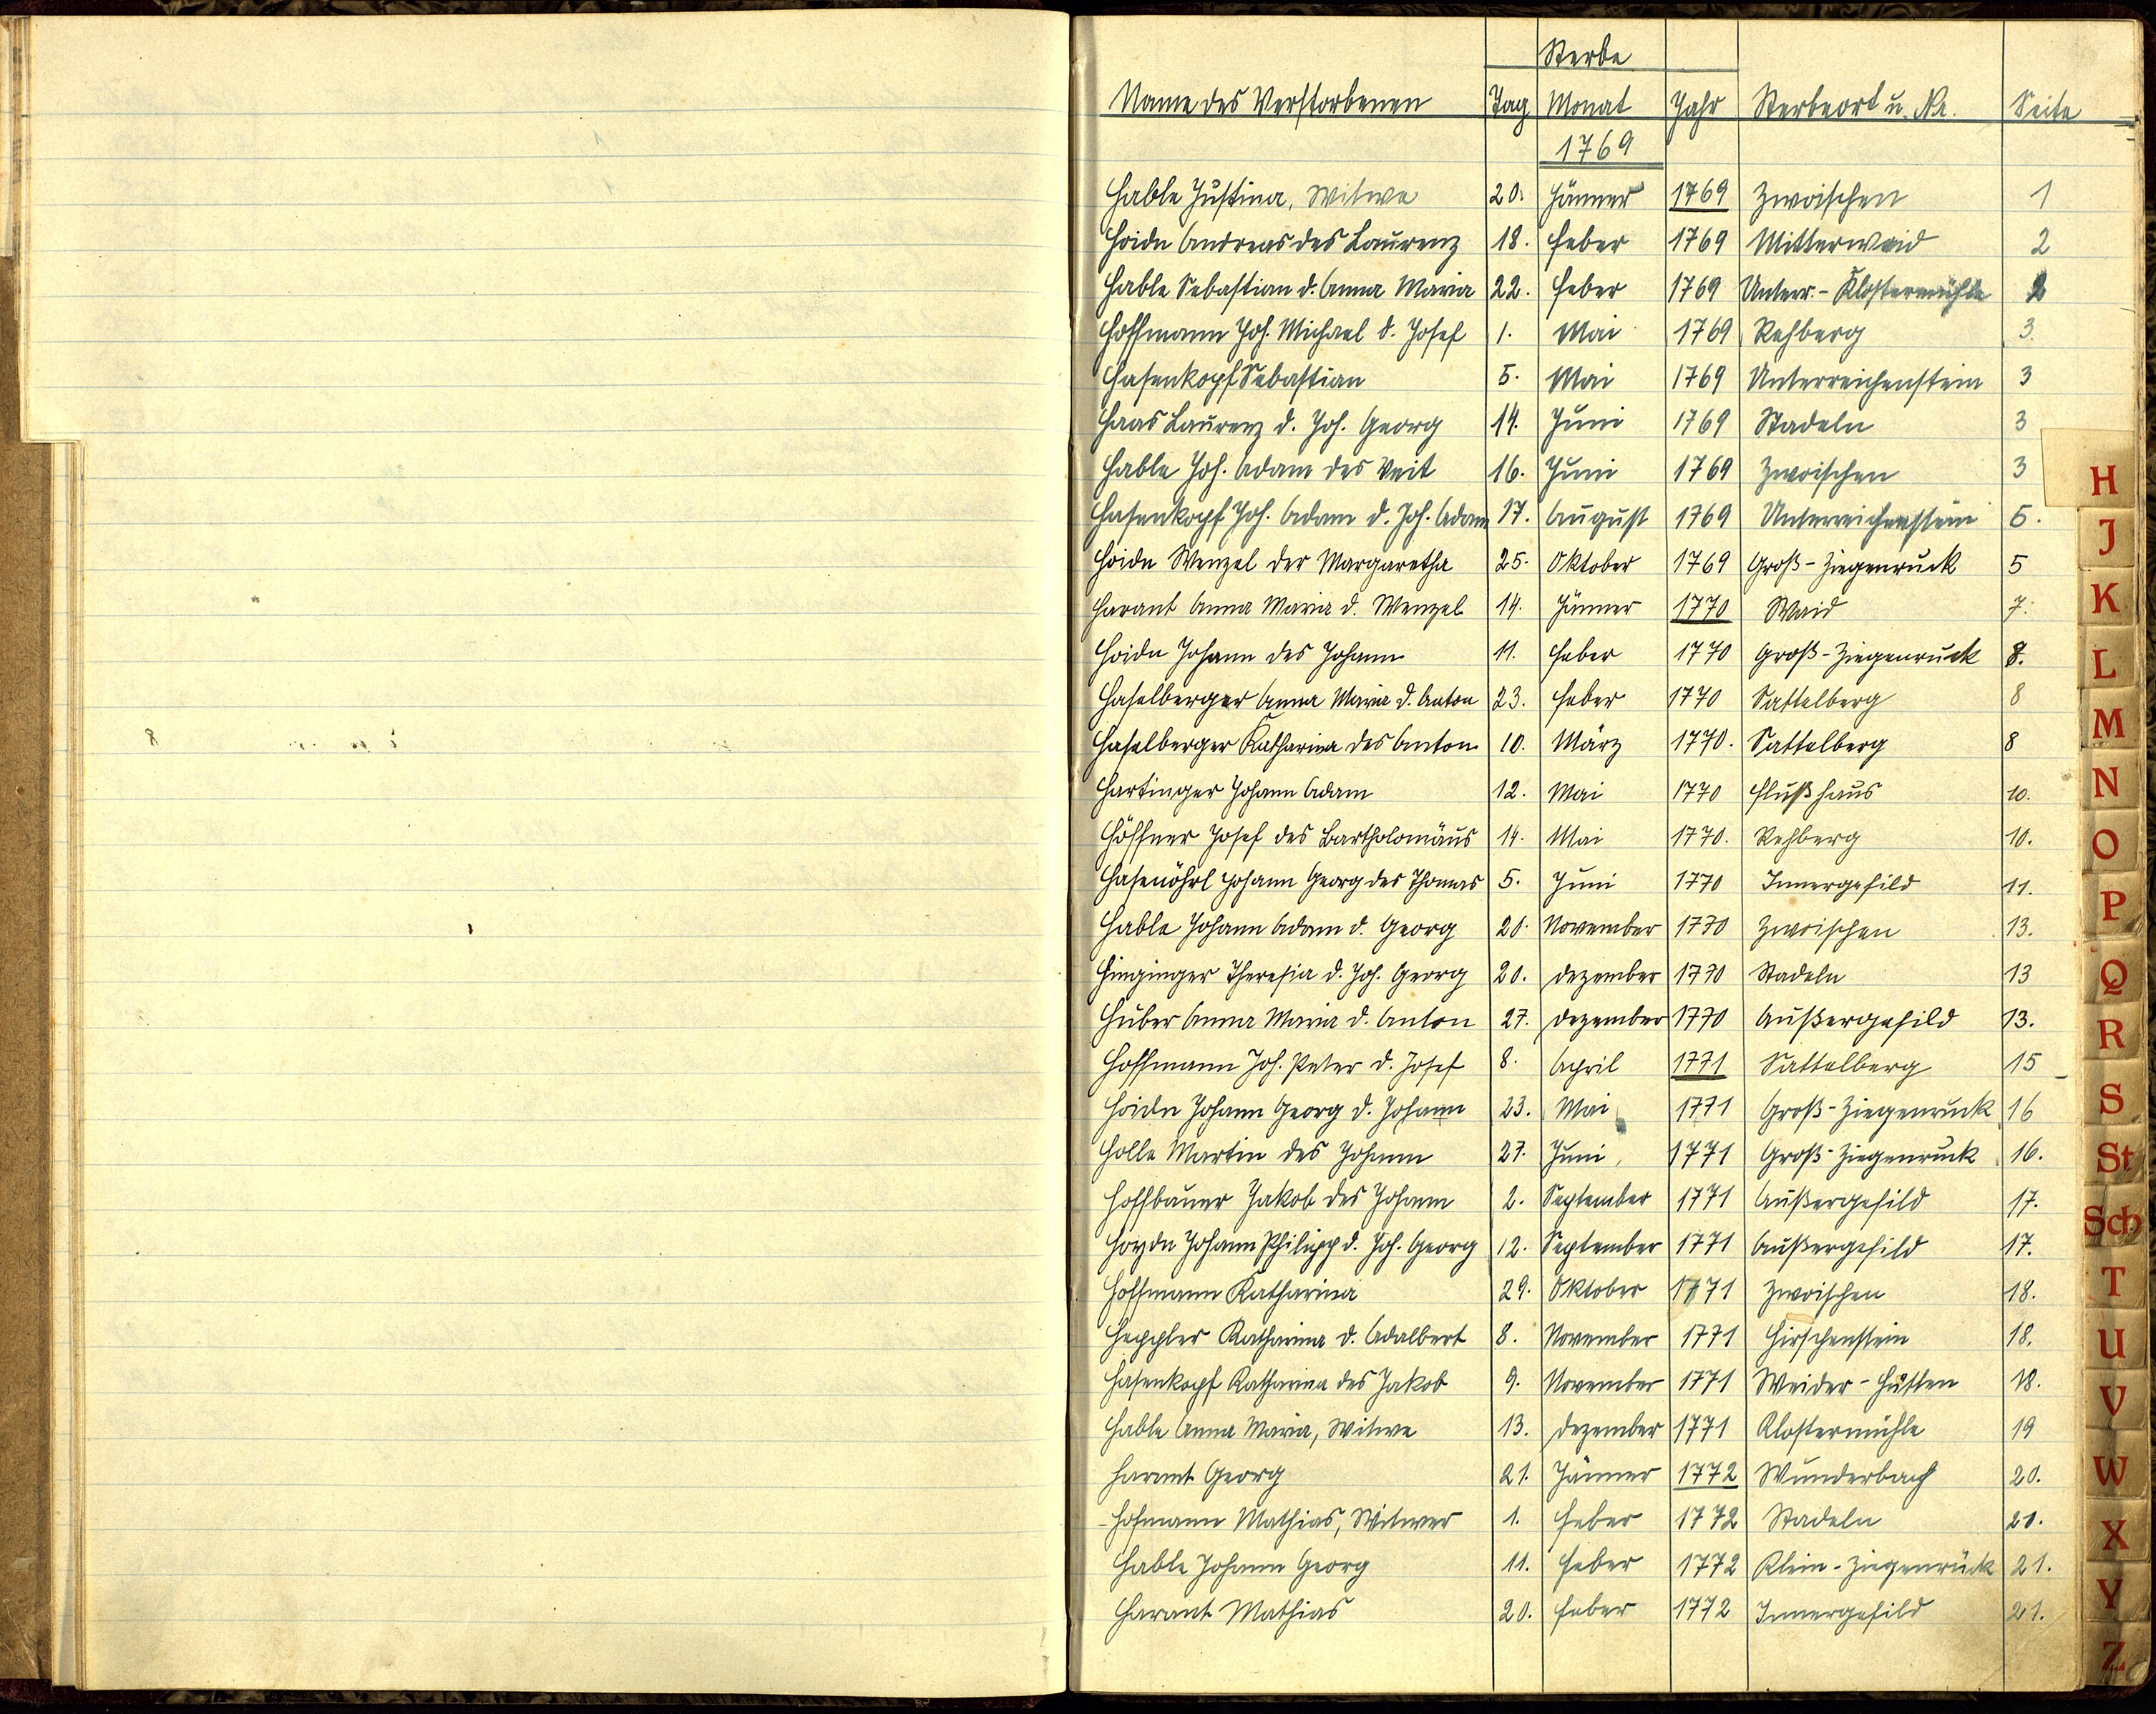 Sterbe
Name des Verstorbenen Tag Monat Jahr Sterbeort u. Nr. Seite
1769
Hable Justina, Witwe 20. Jänner 1769 Zwoischen 1
Hoidn Andreas des Laurenz 18. Feber 1769 Mitterwaid 2
Hable Sebastian d. Anna Maria 22. Feber 1769 Unterr.-Klostermühle 2
Hoffmann Joh. Michael d. Josef 1. Mai 1769 Rehberg 3.
Hasenkopf Sebastian 5. Mai 1769 Unterreichenstein 3
Haas Laurenz d. Joh. Georg 14. Juni 1769 Stadeln 3
Hable Joh. Adam des Veit 16. Juni 1769 Zwoischen 3
Hasenkopf Joh. Adam d. Joh. Adam 17. August 1769 Unterreichenstein 5.
Hoidn Wenzel der Margaretha 25. Oktober 1769 Groß-Ziegenruck 5
Harant Anna Maria d. Wenzel 14. Jänner 1770 Waid 7.
Hoidn Johann des Johann 11. Feber 1770 Groß-Ziegenruck 8.
Haselberger Anna Maria d. Anton 23. Feber 1770 Sattelberg 8
Haselberger Katharina des Anton 10. März 1770. Sattelberg 8
Hartinger Johann Adam 12. Mai 1770 Flußhaus 10.
Höffner Josef des Bartholomäus 14. Mai 1770. Rehberg 10.
Hasenöhrl Johann Georg des Thomas 5. Juni 1770 Innergefild 11.
Hable Johann Adam d. Georg 20. November 1770 Zwoischen 13.
Hinginger Theresia d. Joh. Georg 20. Dezember 1770 Stadeln 13
Huber Anna Maria d. Anton 27. Dezember 1770 Außergefild 13.
Hoffmann Joh. Peter d. Josef 8. April 1771 Sattelberg 15
Hoidn Johann Georg d. Johann 23. Mai 1771 Groß-Ziegenruck 16
Holle Martin des Johann 27. Juni 1771 Groß-Ziegenruck 16.
Hoffbauer Jakob des Johann 2. September 1771 Außergefild 17.
Hoydn Johann Philipp d. Joh. Georg 12. September 1771 Außergefild 17.
Hoffmann Katharina 29. Oktober 1771 Zwoischen 18.
Heppler Katharina d. Adalbert 8. November 1771 Hirschenstein 18.
Hasenkopf Katharina des Jakob 9. November 1771 Weider-Hütten 18.
Hable Anna Maria, Witwe 13. Dezember 1771 Klostermühle 19
Harant Georg 21. Jänner 1772 Wunderbach 20.
Hofmann Mathias, Witwer 1. Feber 1772 Stadeln 20.
Hable Johann Georg 11. Feber 1772 Klein-Ziegenrück 21.
Harant Mathias 20. Feber 1772 Innergefild 21.
H
J
K
L
M
N
O
P
Q
R
S
St
Sch
T
U
V
W
X
Y
Z